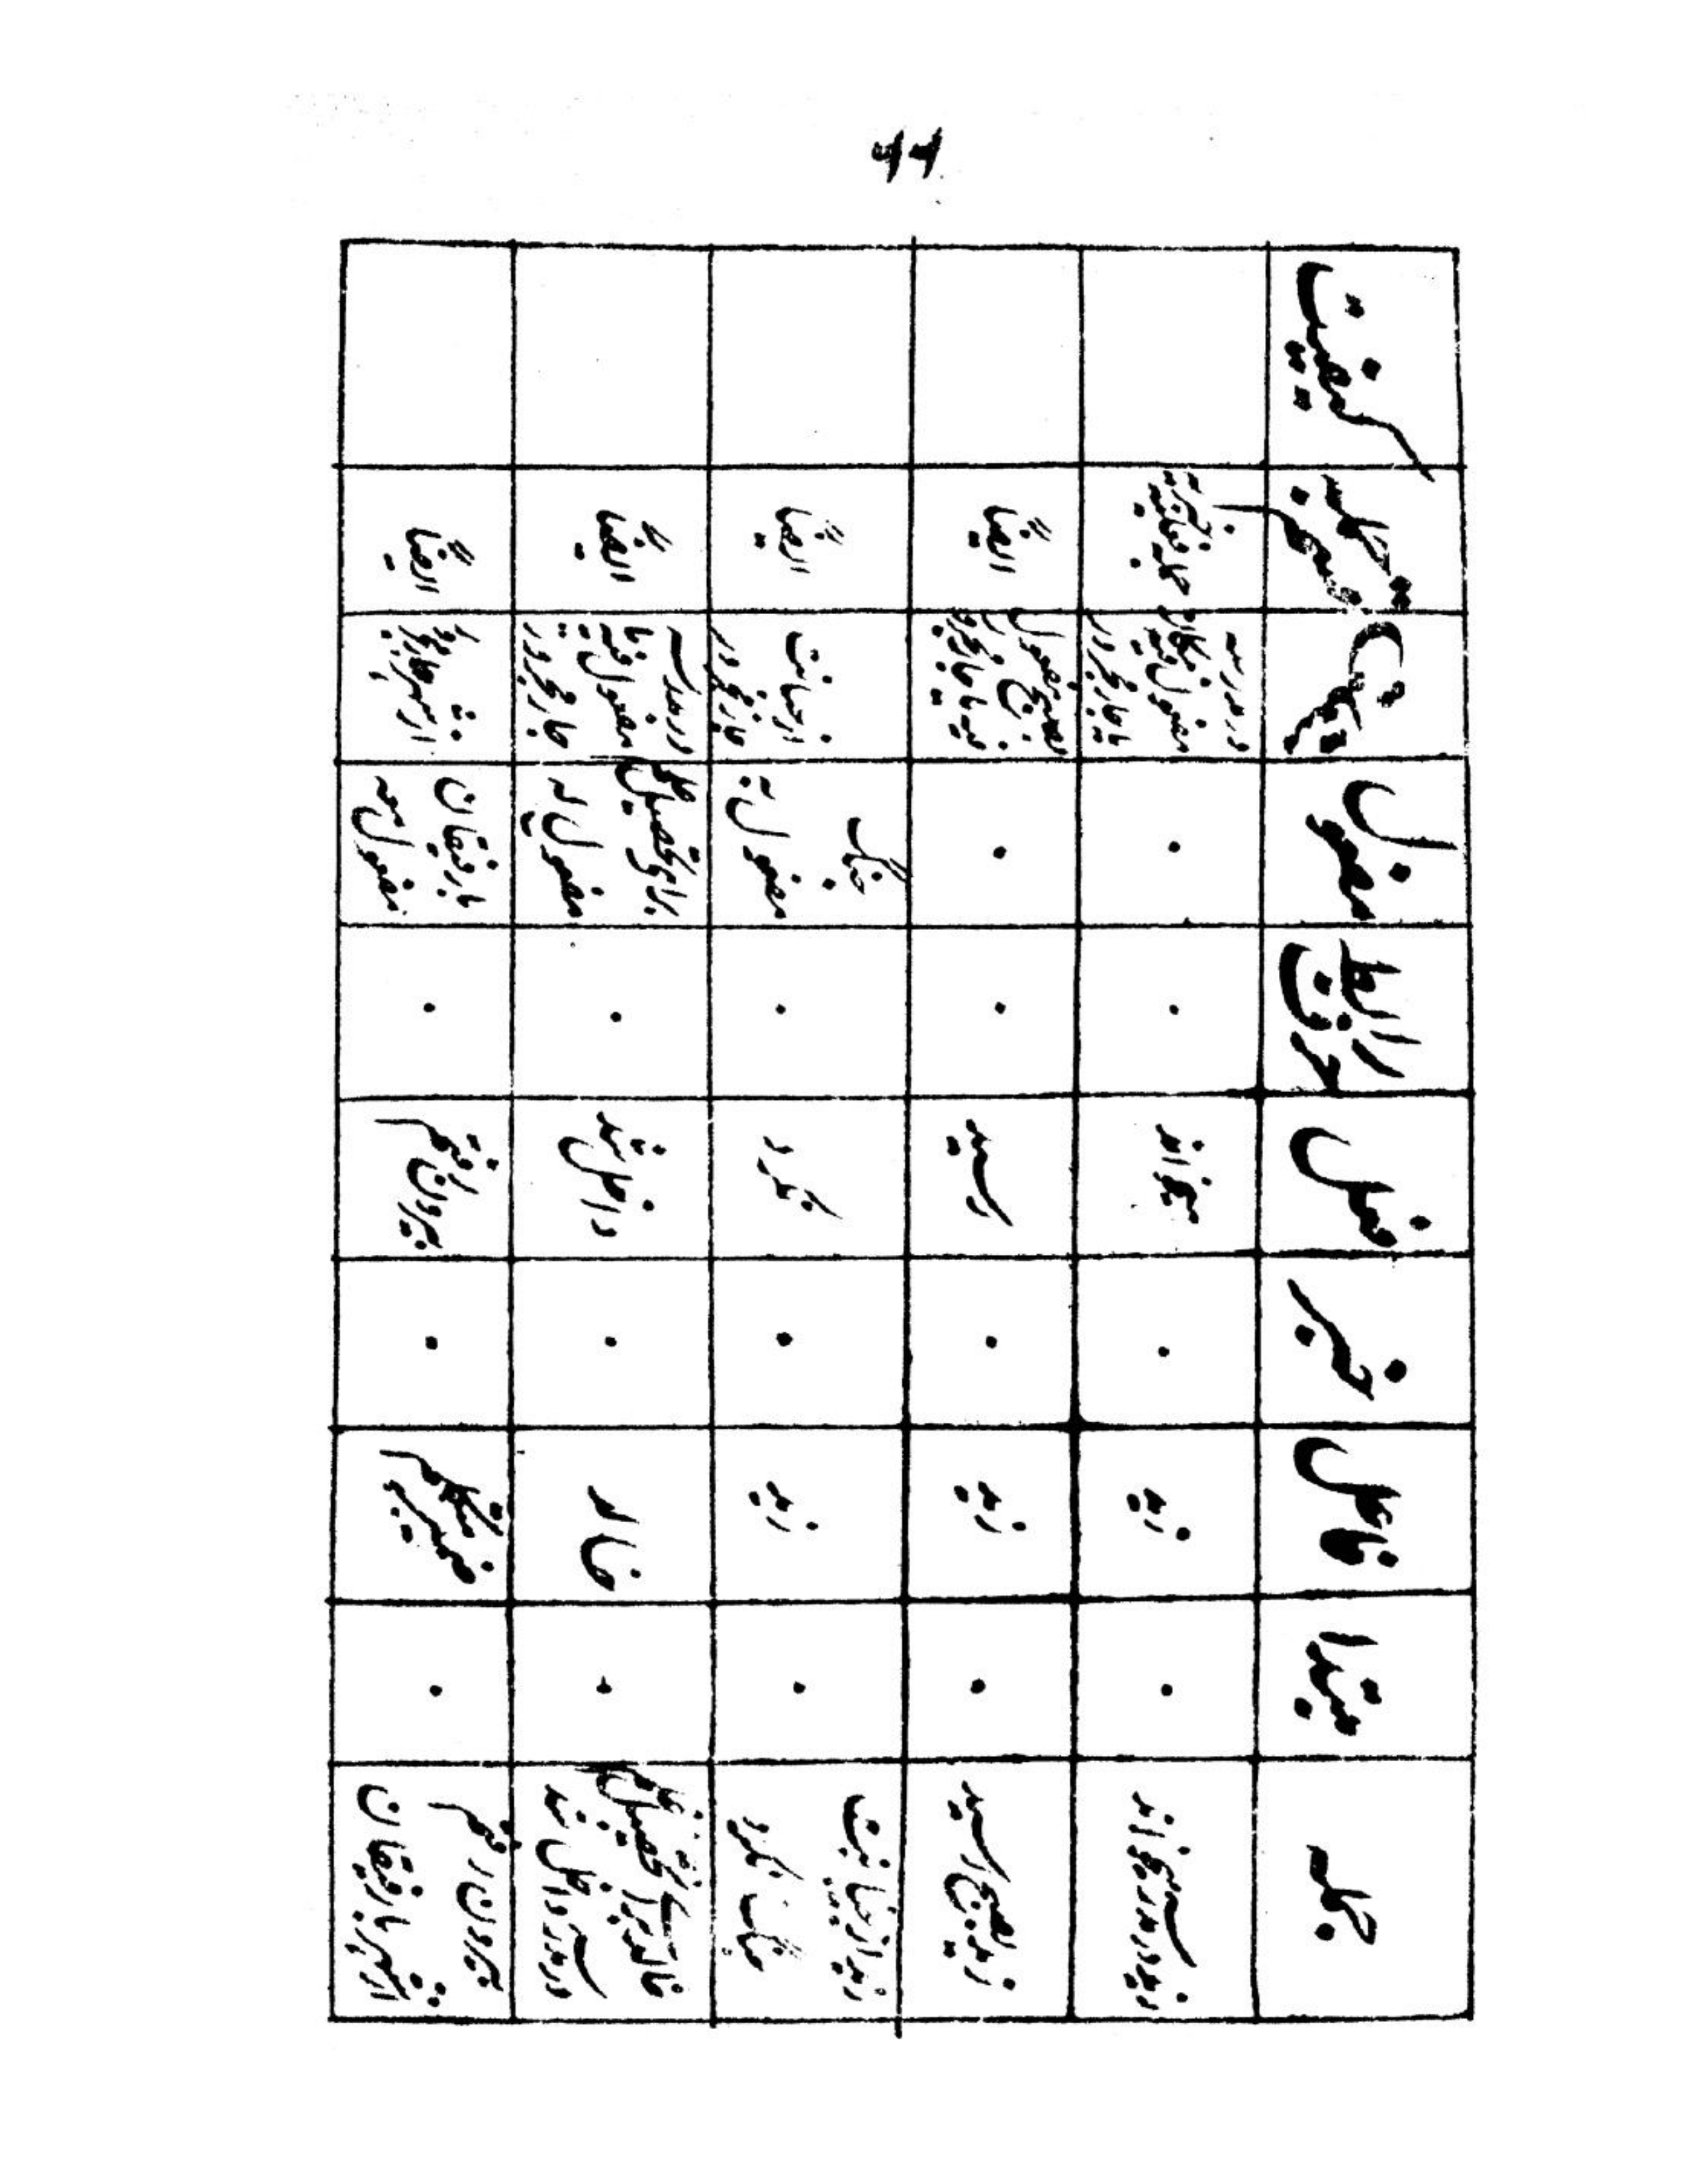 ۶۶
جمله
مبتدا
فاعل
خبر
فعل
حرف رابط
مفعول
متعلق
قسم جمله
کیفیت
زید در مدرسه میخواند
۰
زید
۰
میخواند
۰
۰
در مدرسه
مفعول فیه
یا جار مجرور
جمله فعلیه خبریه
زید بصبح رسید
۰
زید
۰
رسید
۰
۰
بصبح مفعول
فیه یا جار مجرور
ایضاً
زید از خیانت
جنگ نکرد
۰
زید
۰
نکرد
۰
جنگ
مفعول به
از خیانت
جار مجرور
ایضاً
خالد برای تحصیل علم
در مدرسه داخل شد
۰
خالد
۰
داخل شد
۰
برای تحصیل علم
مفعول له
در مدرسه
مفعول فیه یا
جار مجرور
ایضاً
از شهر با رفیقان
بیرون رفتم
۰
ضمیر متکلم
۰
بیرون رفتم
۰
با رفیقان
مفعول معه
از شهر جار مجرور
ایضاً